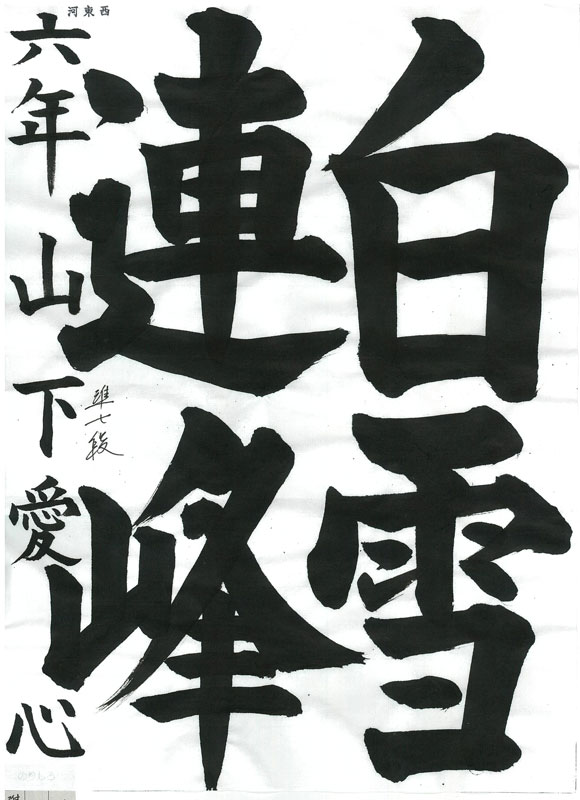 白雪
連峰
六年 山下愛心
準七段
河東西